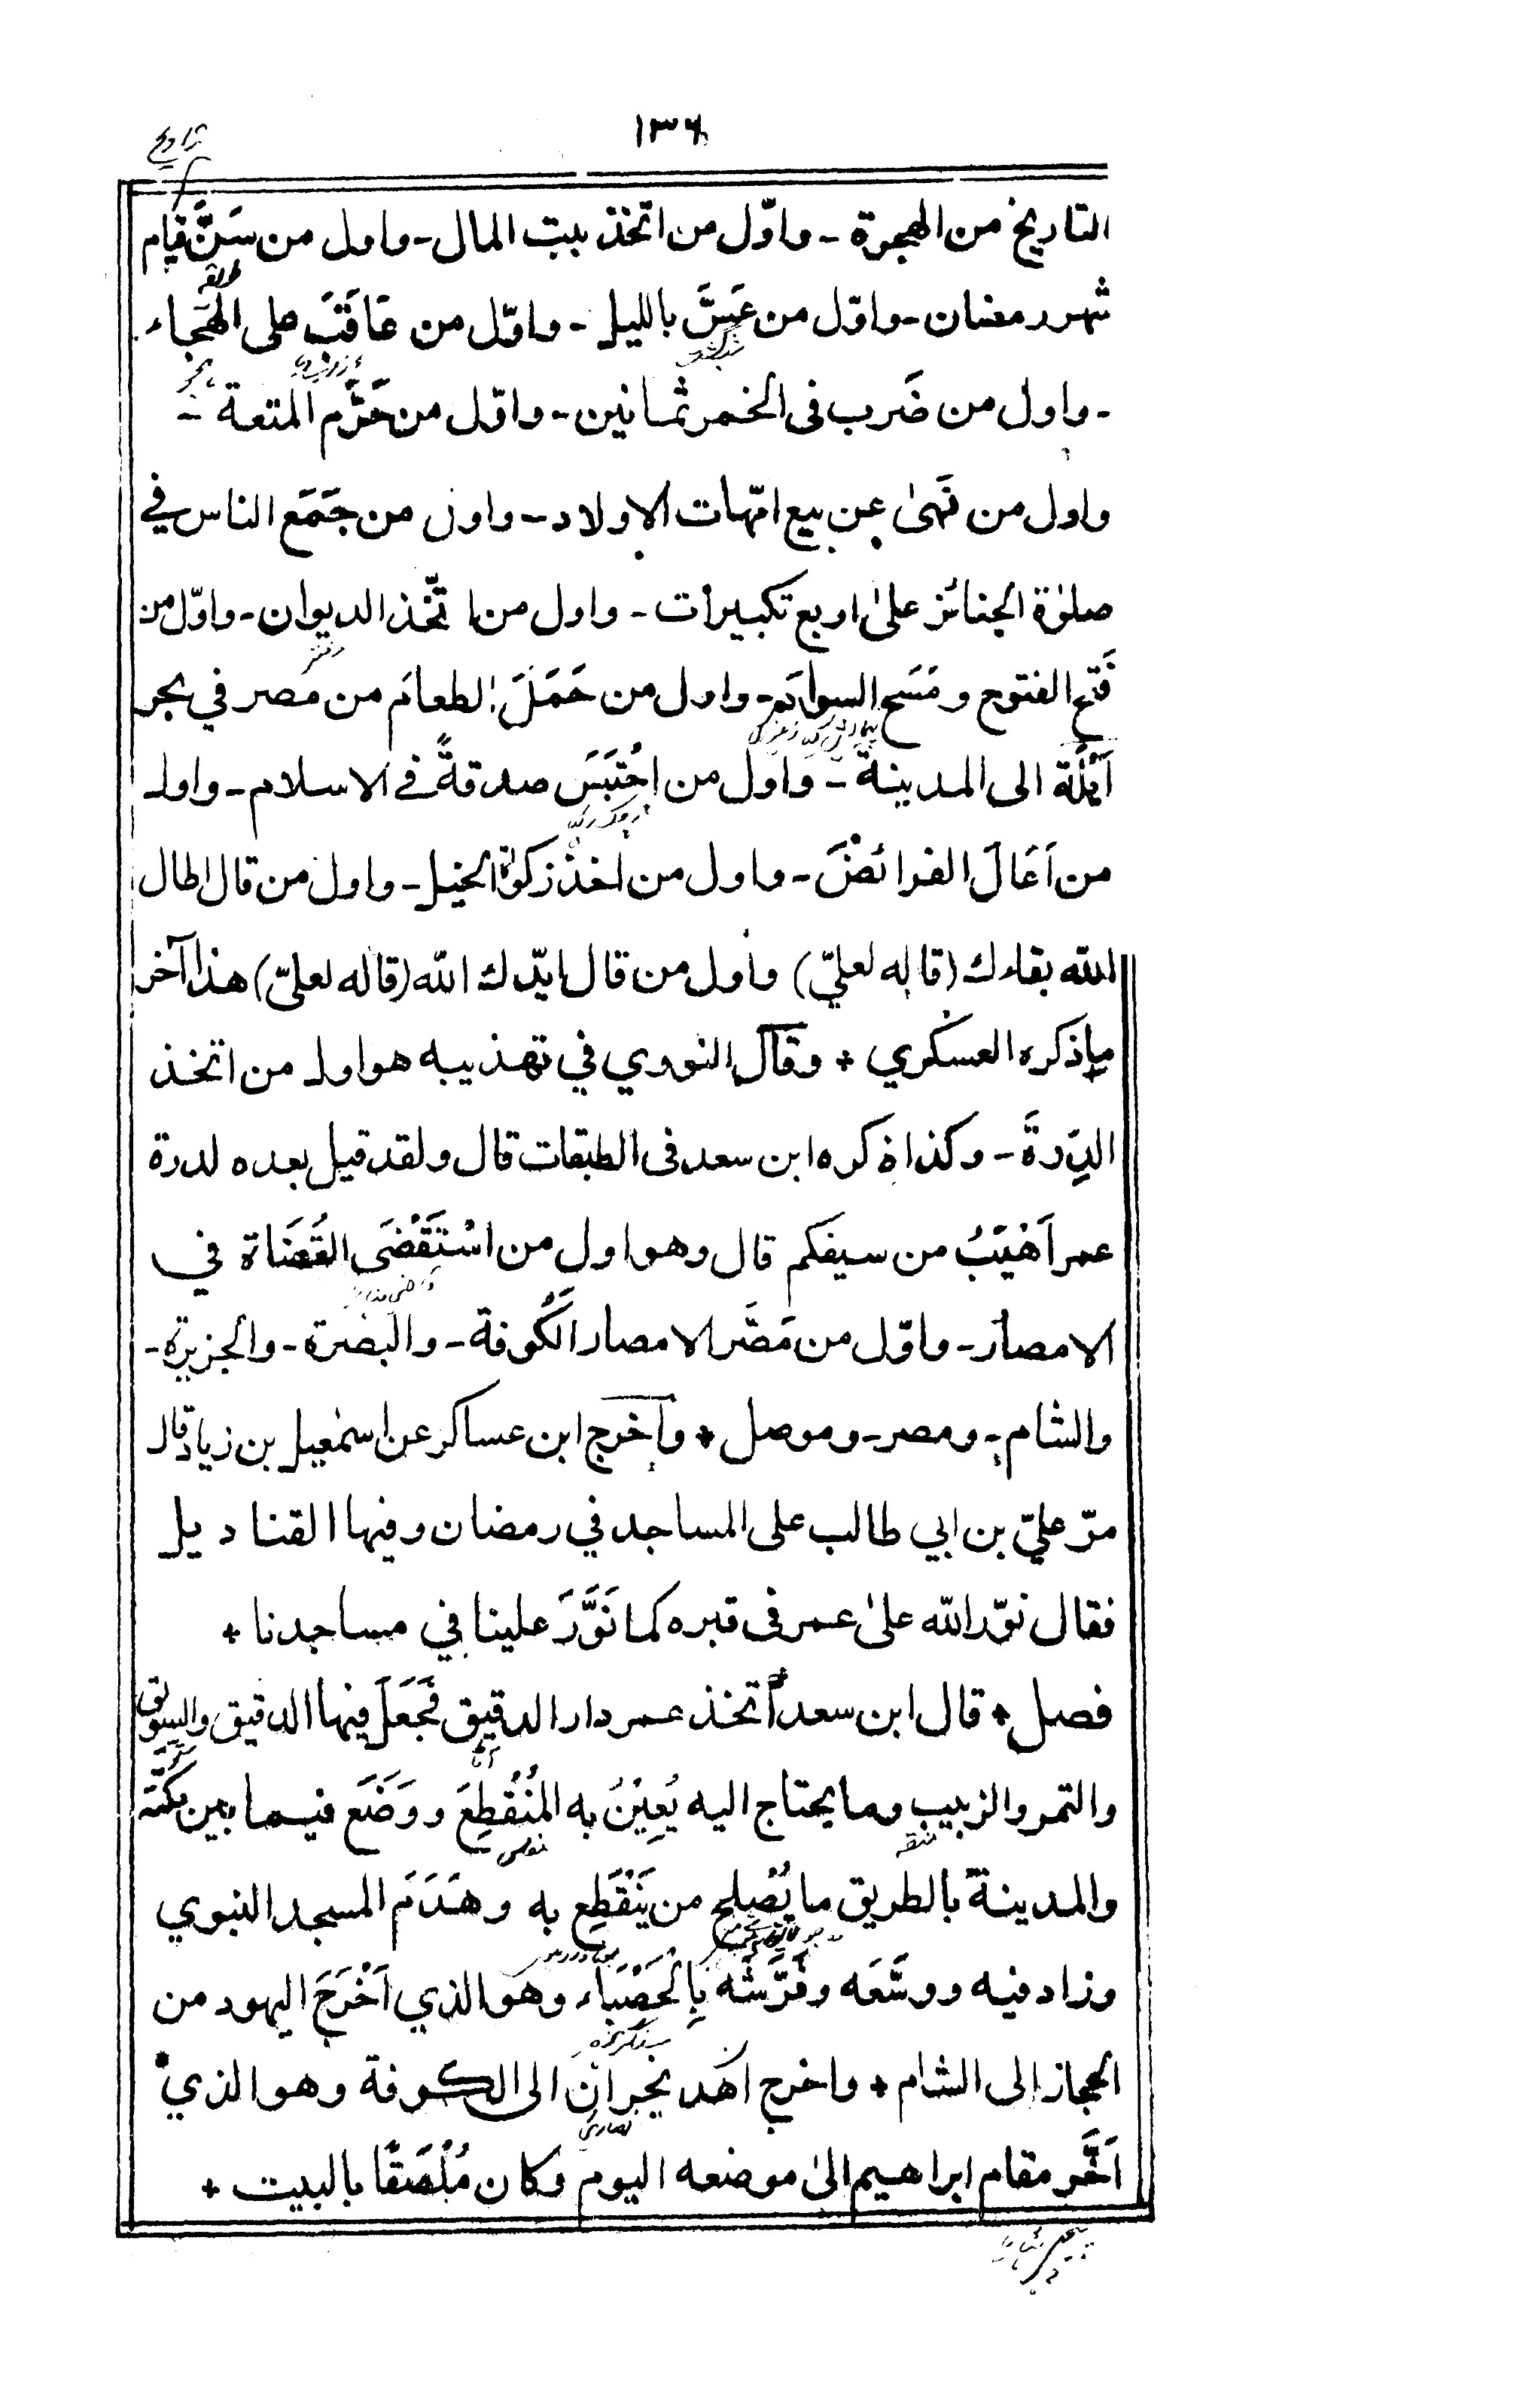 ١٣٦
التاريخ من الهجرة - واوّل من اتّخذ بيت المال - واول من سَنَّ قيام
شهر رمضان - واوّل من عَسَّ بالليل - واوّل من عَاقَبَ على الهجاء
- واول من ضَرب فى الخمر ثمانين - واوّل من حَرَّم المتعة -
واول من نَهىٰ عن بيع امّهات الاولاد - واول من جَمَع الناس في
صلوٰة الجنائز علىٰ اربع تكبيرات - واول من اتّخذ الديوان - واوّل من
فَتح الفتوح ومَسَح السواد - واول من حَمَلَ الطعام من مصر في بحر
اَيْلَة الى المدينة - واول من احْتَبَسَ صدقةً فے الاسلام - واول
من اَعَالَ الفرائض - واول من اخذ زكوٰة الخيل - واول من قال اطال
الله بقاءك (قاله لعليّ) واول من قال ايّدك الله (قاله لعليّ) هذا آخر
ما ذكره العسكري + وقال النووي في تهذيبه هو اول من اتخذ
الدِرة - وكذا ذكره ابن سعد فى الطبقات قال ولقد قيل بعده لدرة
عمر اَهْيَبُ من سيفكم قال وهو اول من اسْتَقْضَى القُضَاة في
الامصار - واوّل من مَصَّر الامصار الكُوفة - والبصرة - والجزيرة -
والشام - ومصر - وموصل + واخرج ابن عساكر عن اسمٰعيل بن زياد قال
مرّ عليّ بن ابي طالب على المساجد في رمضان وفيها القناديل
فقال نوّر الله علىٰ عمر فى قبره كما نَوَّرَ علينا في مساجدنا +
فصل + قال ابن سعد اتخذ عمر دار الدقيق فجَعَلَ فيها الدقيق والسويق
والتمر والزبيب وما يحتاج اليه يُعِيْنُ به المُنْقَطِعَ ووَضَعَ فيما بين مكّة
والمدينة بالطريق ما يُصْلح من يَنْقَطِع به وهَدَمَ المسجد النبوي
وزاد فيه ووسَّعَه وفَرَّشَه بِالحَصْبَاء وهو الذي اَخْرَجَ اليهود من
الحجاز الى الشام + واخرج اهل نجران الى الكوفة وهو الذي
اَخَّر مقام ابراهيم الىٰ موضعه اليوم وكان مُلْصَقًا بالبيت +